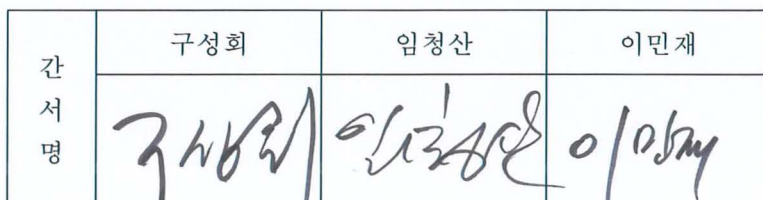 간서명
구성회 임청산 이민재
구성회 임청산 이민재